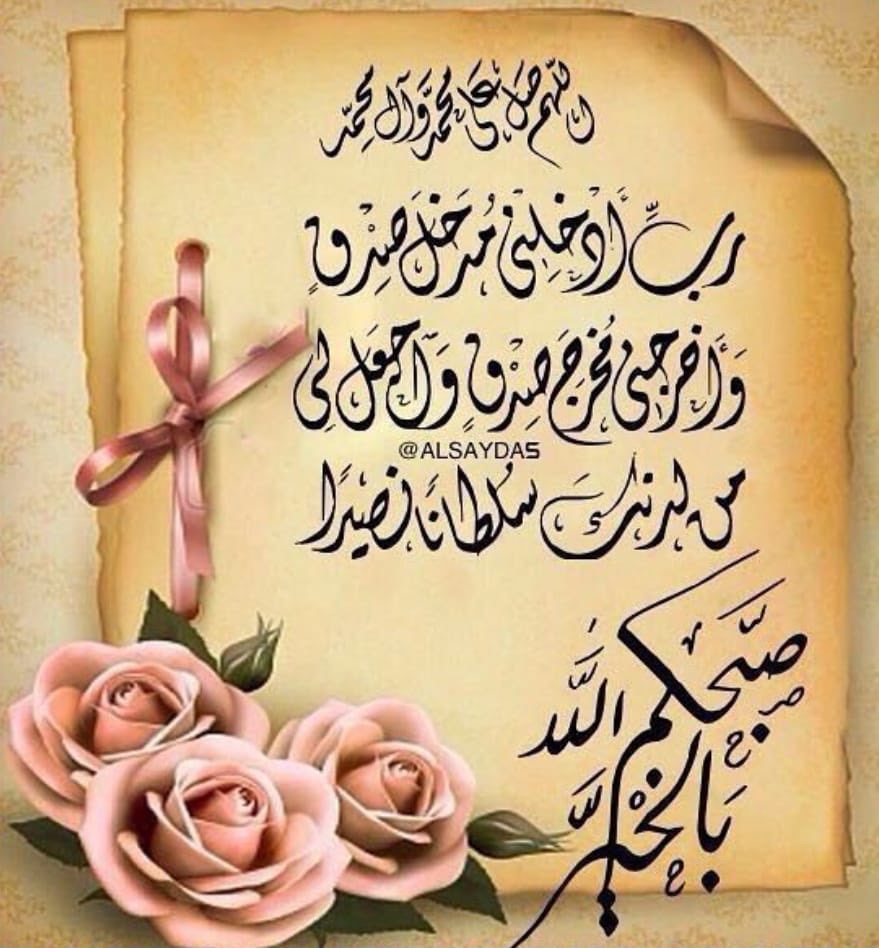 اللهم صل على محمد وآل محمد
رَبِّ أَدْخِلْنِي مُدْخَلَ صِدْقٍ
وَأَخْرِجْنِي مُخْرَجَ صِدْقٍ وَاجْعَل لِي
@ALSAYDA5
مِن لَدُنكَ سُلْطَانًا نَصِيرًا
صبّحكم الله
بالخير